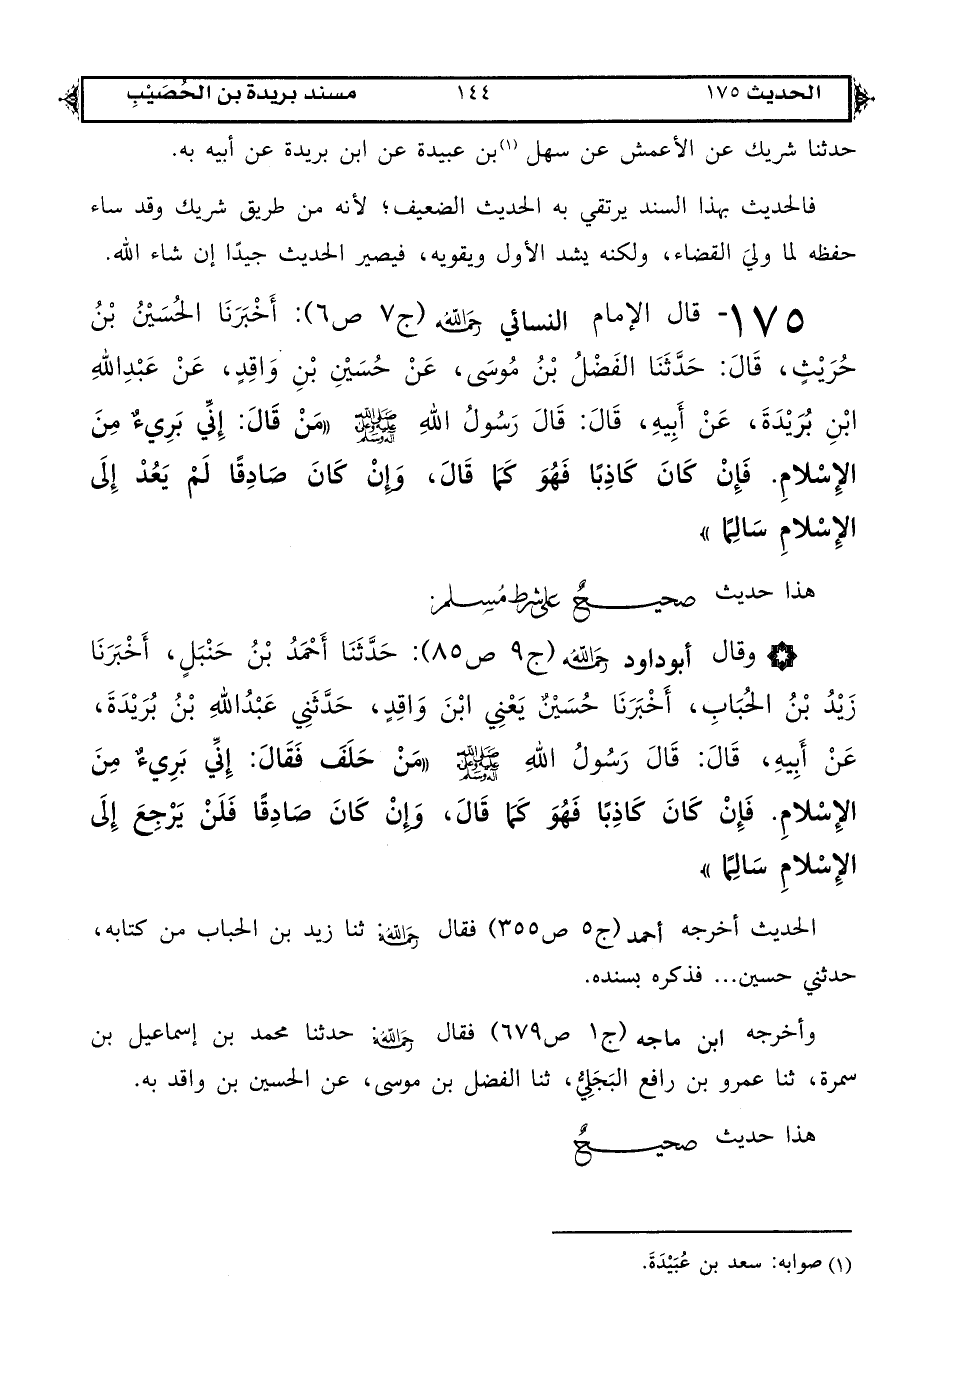 الحديث ١٧٥ ١٤٤ مسند بريدة بن الحُصَيْبِ
حدثنا شريك عن الأعمش عن سهل (١)بن عبيدة عن ابن بريدة عن أبيه به.
فالحديث بهذا السند يرتقي به الحديث الضعيف؛ لأنه من طريق شريك وقد ساء
حفظه لما وليَ القضاء، ولكنه يشد الأول ويقويه، فيصير الحديث جيدًا إن شاء الله.
١٧٥- قال الإمام النسائي رَحِمَهُ اللهُ (ج٧ ص٦): أَخْبَرَنَا الحُسَيْنُ بْنُ
حُرَيْثٍ، قَالَ: حَدَّثَنَا الفَضْلُ بْنُ مُوسَى، عَنْ حُسَيْنِ بْنِ وَاقِدٍ، عَنْ عَبْدِاللهِ
ابْنِ بُرَيْدَةَ، عَنْ أَبِيهِ، قَالَ: قَالَ رَسُولُ اللهِ ﷺ «مَنْ قَالَ: إِنِّي بَرِيءٌ مِنَ
الإِسْلامِ. فَإِنْ كَانَ كَاذِبًا فَهُوَ كَمَا قَالَ، وَإِنْ كَانَ صَادِقًا لَمْ يَعُدْ إِلَى
الإِسْلامِ سَالِمًا»
هذا حديث صحيحٌ على شرط مُسِلم.
وقال أبوداود رَحِمَهُ اللهُ (ج٩ ص٨٥): حَدَّثَنَا أَحْمَدُ بْنُ حَنْبَلٍ، أَخْبَرَنَا
زَيْدُ بْنُ الحُبَابِ، أَخْبَرَنَا حُسَيْنٌ يَعْنِي ابْنَ وَاقِدٍ، حَدَّثَنِي عَبْدُاللهِ بْنُ بُرَيْدَةَ،
عَنْ أَبِيهِ، قَالَ: قَالَ رَسُولُ اللهِ ﷺ «مَنْ حَلَفَ فَقَالَ: إِنِّي بَرِيءٌ مِنَ
الإِسْلامِ. فَإِنْ كَانَ كَاذِبًا فَهُوَ كَمَا قَالَ، وَإِنْ كَانَ صَادِقًا فَلَنْ يَرْجِعَ إِلَى
الإِسْلامِ سَالِمًا»
الحديث أخرجه أحمد (ج٥ ص٣٥٥) فقال رَحِمَهُ اللهُ: ثنا زيد بن الحباب من كتابه،
حدثني حسين... فذكره بسنده.
وأخرجه ابن ماجه (ج١ ص٦٧٩) فقال رَحِمَهُ اللهُ: حدثنا محمد بن إسماعيل بن
سمرة، ثنا عمرو بن رافع البَجَلِيُّ، ثنا الفضل بن موسى، عن الحسين بن واقد به.
هذا حديث صحيحٌ
(١) صوابه: سعد بن عُبَيْدَةَ.